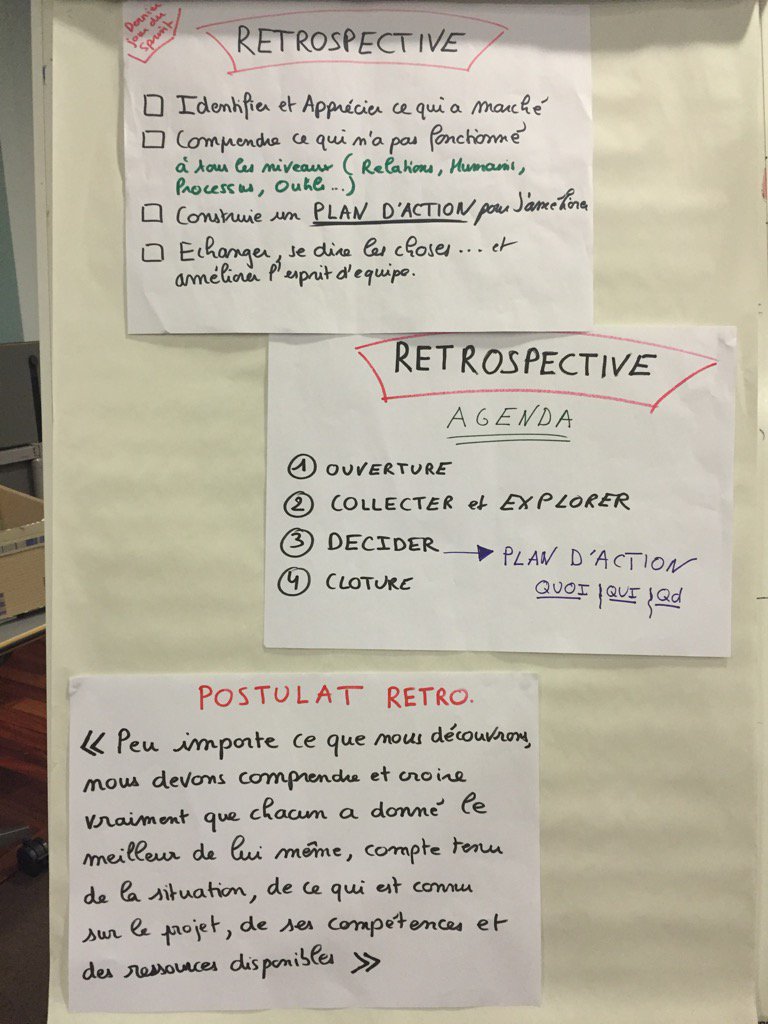 Dernier
jour du
Sprint
RETROSPECTIVE
Identifier et Apprécier ce qui a marché
Comprendre ce qui n'a pas fonctionné
à tous les niveaux (Relations, Humains,
Processus, Outils...)
Construire un PLAN D'ACTION pour s'améliorer
Echanger, se dire les choses... et
améliorer l'esprit d'equipe.
RETROSPECTIVE
AGENDA
1 OUVERTURE
2 COLLECTER et EXPLORER
3 DECIDER → PLAN D'ACTION
QUOI } QUI } Qd
4 CLOTURE
POSTULAT RETRO.
« Peu importe ce que nous découvrons,
nous devons comprendre et croire
vraiment que chacun a donné le
meilleur de lui même, compte tenu
de la situation, de ce qui est connu
sur le projet, de ses compétences et
des ressources disponibles »